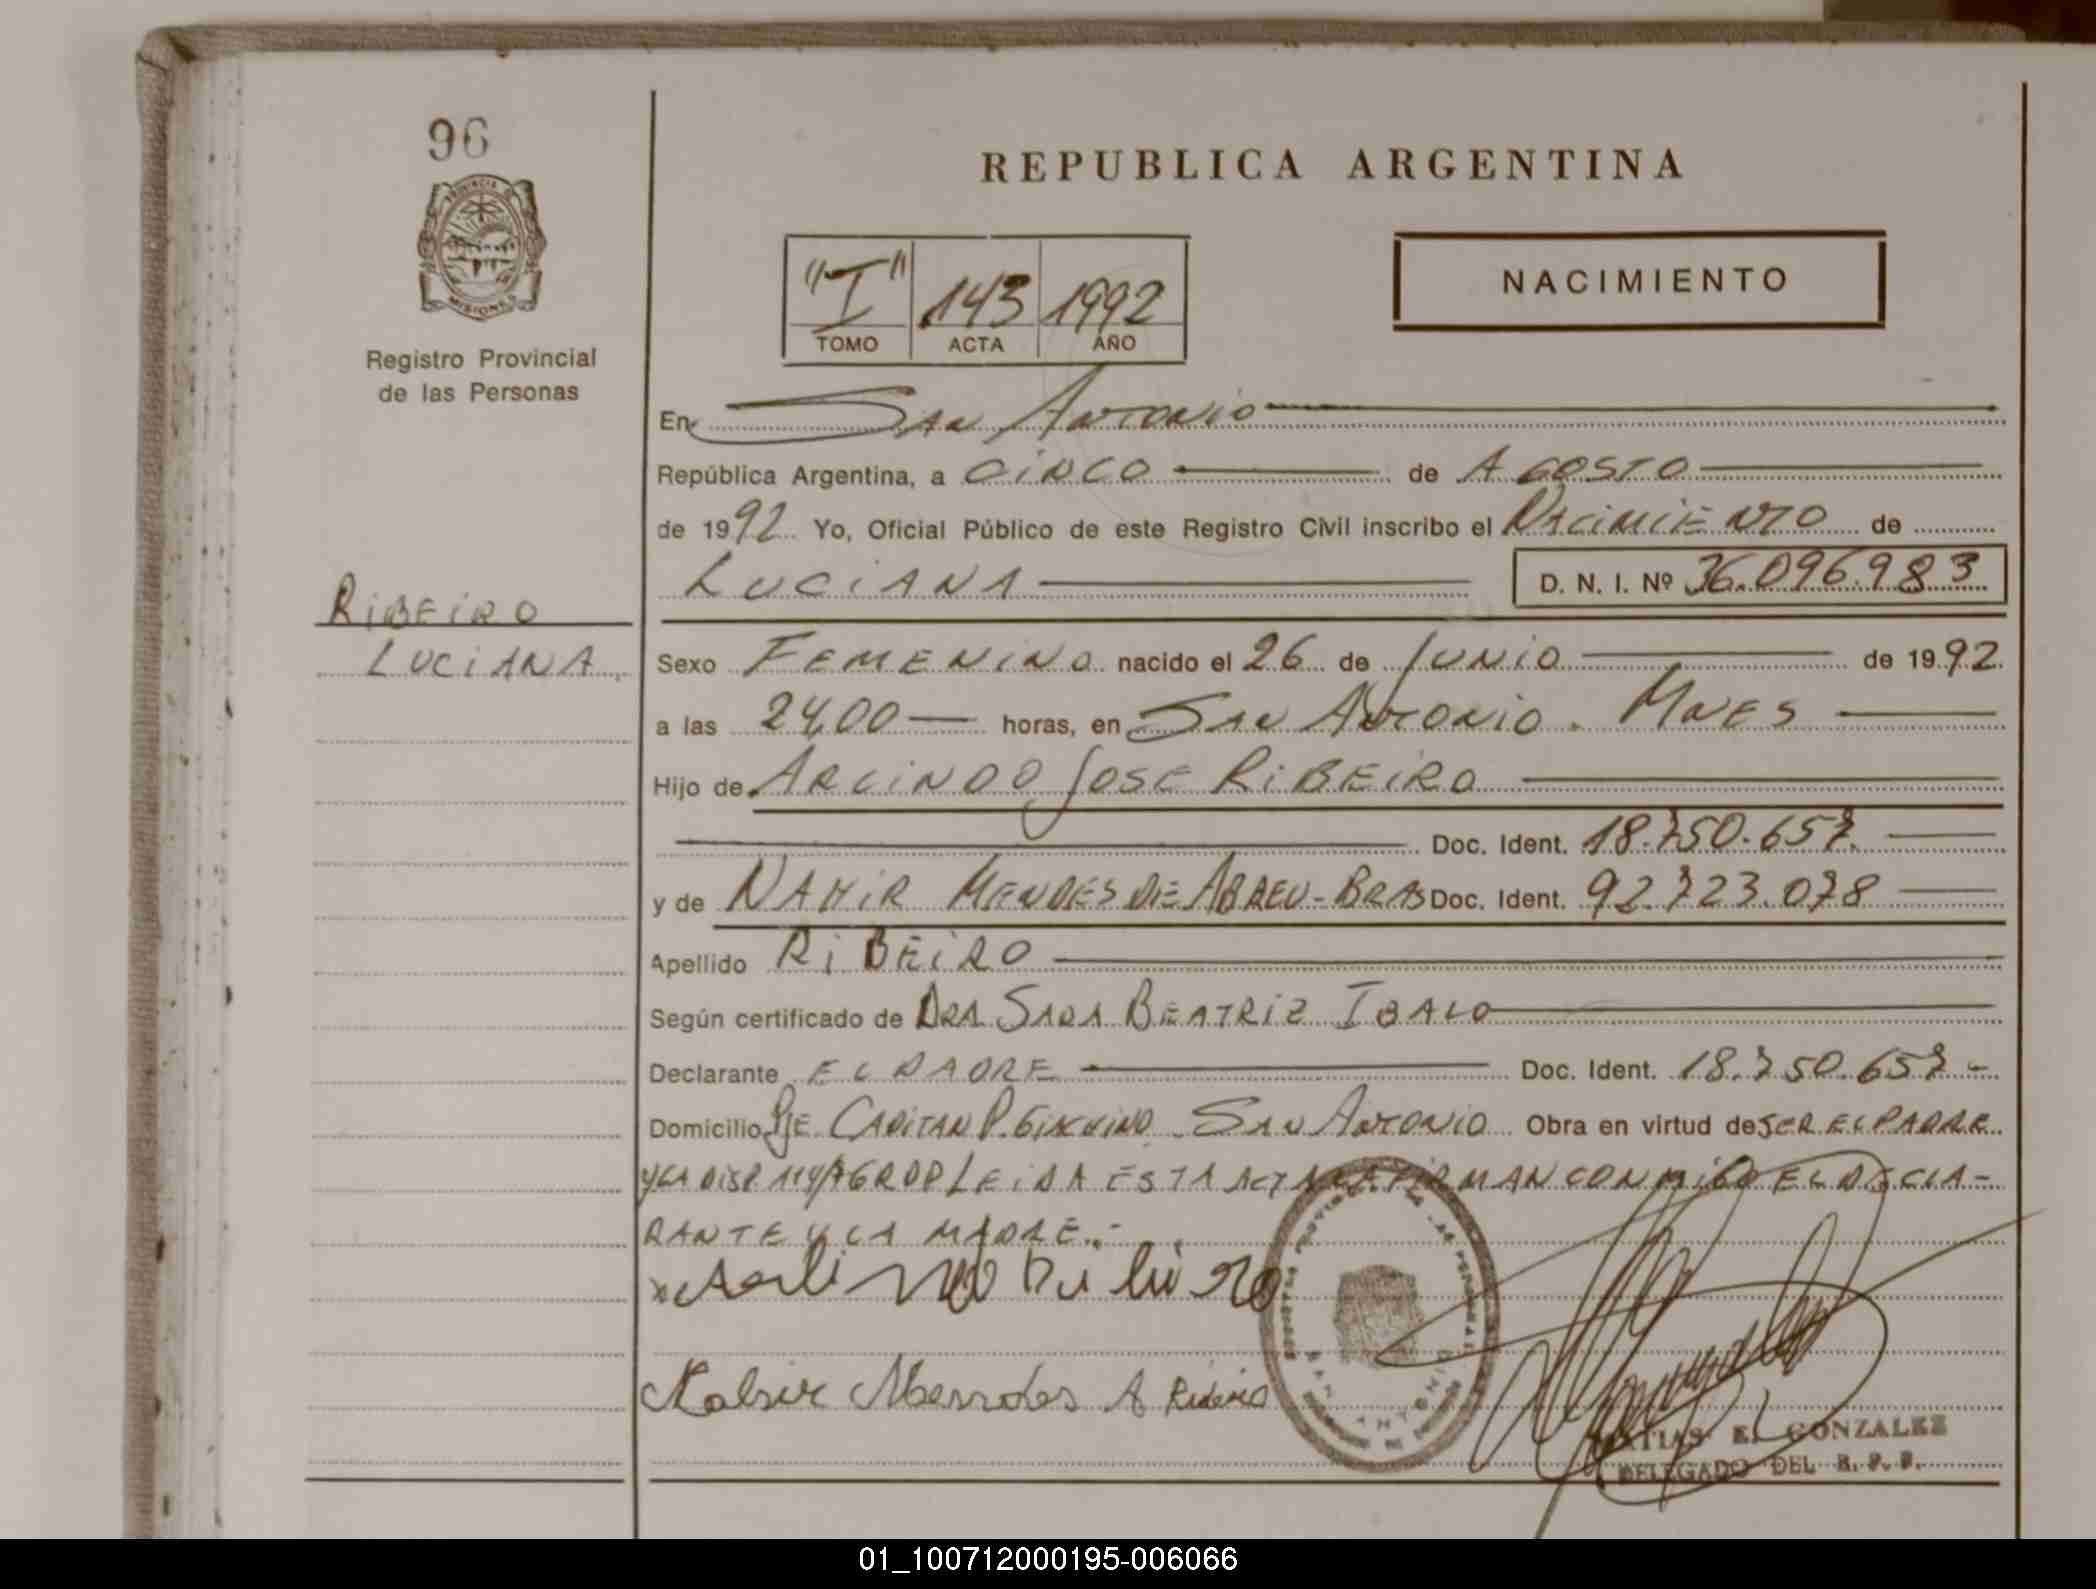 96
PROVINCIA D
MISIONES
Registro Provincial
de las Personas
RIBEIRO
LUCIANA
REPUBLICA ARGENTINA
"I" 143 1992
TOMO ACTA AÑO
NACIMIENTO
En SAN ANTONIO
República Argentina, a CINCO de AGOSTO
de 1992 Yo, Oficial Público de este Registro Civil inscribo el NACIMIENTO de
LUCIANA D. N. I. Nº 36.096.983
Sexo FEMENINO nacido el 26 de JUNIO de 1992
a las 24,00 horas, en SAN ANTONIO. MNES
Hijo de ARLINDO JOSE RIBEIRO
Doc. Ident. 18.750.657.
y de NAHIR MENDES DE ABREU-BRAS Doc. Ident. 92.723.078
Apellido RIBEIRO
Según certificado de DRA SARA BEATRIZ IBALO
Declarante EL PADRE Doc. Ident. 18.750.657-
Domicilio PJE CAPITAN P. SAN ANTONIO Obra en virtud de SER EL PADRE
Y LA DISP. 114/76 RDP LEIDA ESTA ACTA LA FIRMAN CONMIGO EL DECLA-
RANTE Y LA MADRE.-
SAN ANTONIO
MATIAS E. GONZALEZ
DELEGADO DEL R. P. P.
01_100712000195-006066